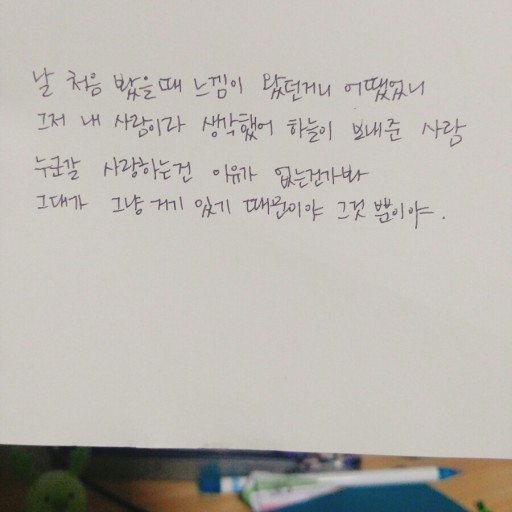 날 처음 봤을때 느낌이 왔던거니 어땠었니
그저 내 사람이라 생각했어 하늘이 보내준 사람
누군갈 사랑하는건 이유가 없는건가봐
그대가 그냥 거기 있기 때문이야 그것 뿐이야.